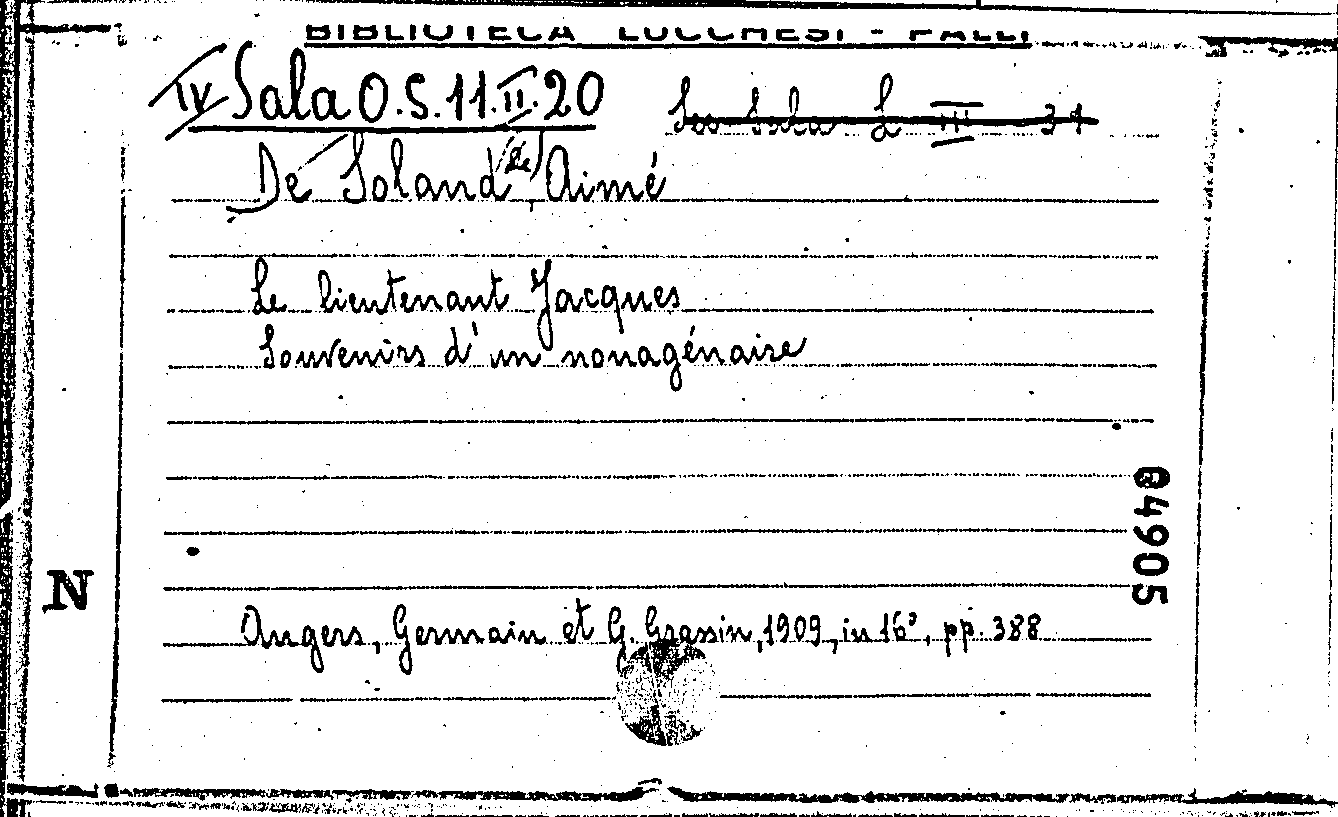 BIBLIOTECA LUCCHESI - PALLI
IV Sala O.S.11.II.20
Sala L III 31
De Soland (de), Aimé
Le lieutenant Jacques
Souvenirs d'un nonagénaire
84905
N
Angers, Germain et G. Grassin, 1909, in 16°, pp. 388